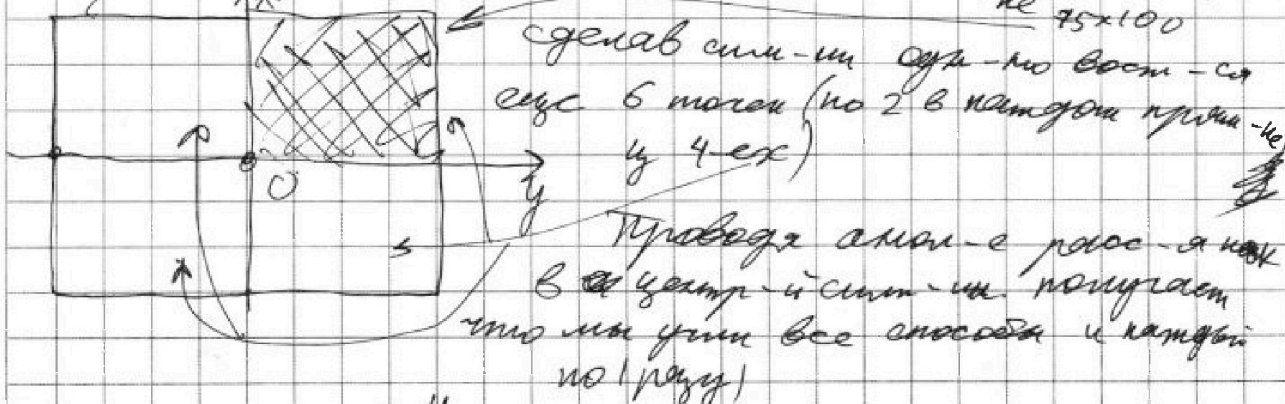 не 75×100
сделав сим-ии одн-но вост-ся
еще 6 точек (по 2 в каждом прям-ке
из 4-ех)
O
y
Проводя анал-е расс-я как
в центр-й сим-ии. получаем
что мы учли все способы и каждый
по 1 разу)